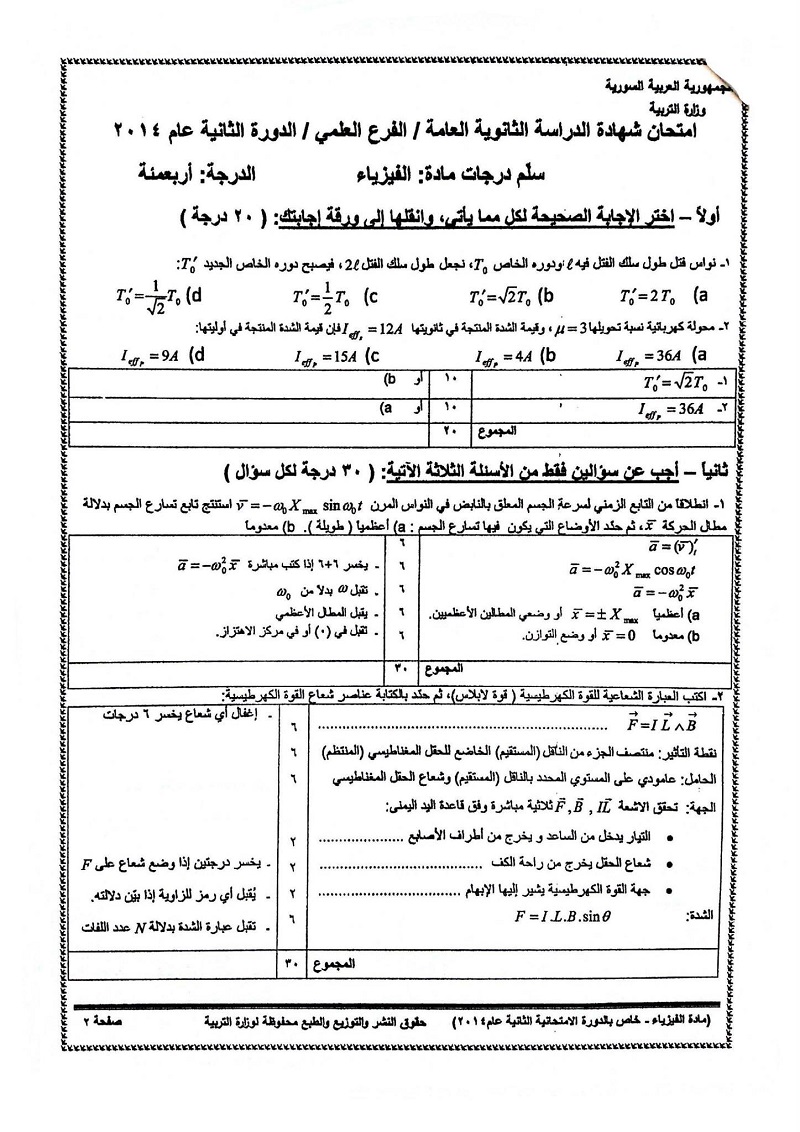 جمهورية العربية السورية
وزارة التربية
امتحان شهادة الدراسة الثانوية العامة / الفرع العلمي / الدورة الثانية عام ٢٠١٤
سلّم درجات مادة: الفيزياء الدرجة: أربعمئة
أولاً – اختر الإجابة الصحيحة لكل مما يأتي، وانقلها إلى ورقة إجابتك: ( ٢٠ درجة )
١- نواس فتل طول سلك الفتل فيه ℓ ودوره الخاص T₀، نجعل طول سلك الفتل 2ℓ، فيصبح دوره الخاص الجديد T₀′:
a) T₀′=2T₀ b) T₀′=√2T₀ c) T₀′=1/2 T₀ d) T₀′=1/√2 T₀
٢- محولة كهربائية نسبة تحويلها μ=3، وقيمة الشدة المنتجة في ثانويتها I_eff_s=12A فإن قيمة الشدة المنتجة في أوليتها:
a) I_eff_p=36A b) I_eff_p=4A c) I_eff_p=15A d) I_eff_p=9A
١- T₀′=√2T₀ ١٠ أو b)
٢- I_eff_p=36A ١٠ أو a)
المجموع ٢٠
ثانياً – أجب عن سؤالين فقط من الأسئلة الثلاثة الآتية: ( ٣٠ درجة لكل سؤال )
١- انطلاقاً من التابع الزمني لسرعة الجسم المعلق بالنابض في النواس المرن v̄=−ω₀X_max sin ω₀t استنتج تابع تسارع الجسم بدلالة
مطال الحركة x̄، ثم حدّد الأوضاع التي يكون فيها تسارع الجسم : a) أعظمياً ( طويلة ). b) معدوماً
ā=(v̄)′_t ٦
ā=−ω₀²X_max cos ω₀t ٦ - يخسر ٦+٦ إذا كتب مباشرة ā=−ω₀²x̄
ā=−ω₀²x̄ ٦ - تقبل ω بدلاً من ω₀
a) أعظمياً x̄=±X_max أو وضعي المطالين الأعظميين. ٦ - يقبل المطال الأعظمي
b) معدوماً x̄=0 أو وضع التوازن. ٦ - تقبل في (٠) أو في مركز الاهتزاز.
المجموع ٣٠
٢- اكتب العبارة الشعاعية للقوة الكهرطيسية ( قوة لابلاس)، ثم حدّد بالكتابة عناصر شعاع القوة الكهرطيسية:
F⃗=I L⃗∧B⃗ ........ ٦ - إغفال أي شعاع يخسر ٦ درجات
نقطة التأثير: منتصف الجزء من الناقل (المستقيم) الخاضع للحقل المغناطيسي (المنتظم) ٦
الحامل: عامودي على المستوي المحدد بالناقل (المستقيم) وشعاع الحقل المغناطيسي ٦
الجهة: تحقق الاشعة F⃗ , B⃗ , IL⃗ ثلاثية مباشرة وفق قاعدة اليد اليمنى:
• التيار يدخل من الساعد و يخرج من أطراف الأصابع ........ ٢
• شعاع الحقل يخرج من راحة الكف ........ ٢ - يخسر درجتين إذا وضع شعاع على F
• جهة القوة الكهرطيسية يشير إليها الإبهام ........ ٢ - يُقبل أي رمز للزاوية إذا بيّن دلالته.
الشدة: F=I.L.B.sinθ ٦ - تقبل عبارة الشدة بدلالة N عدد اللفات
المجموع ٣٠
(مادة الفيزياء - خاص بالدورة الامتحانية الثانية عام ٢٠١٤) حقوق النشر والتوزيع والطبع محفوظة لوزارة التربية صفحة ٢